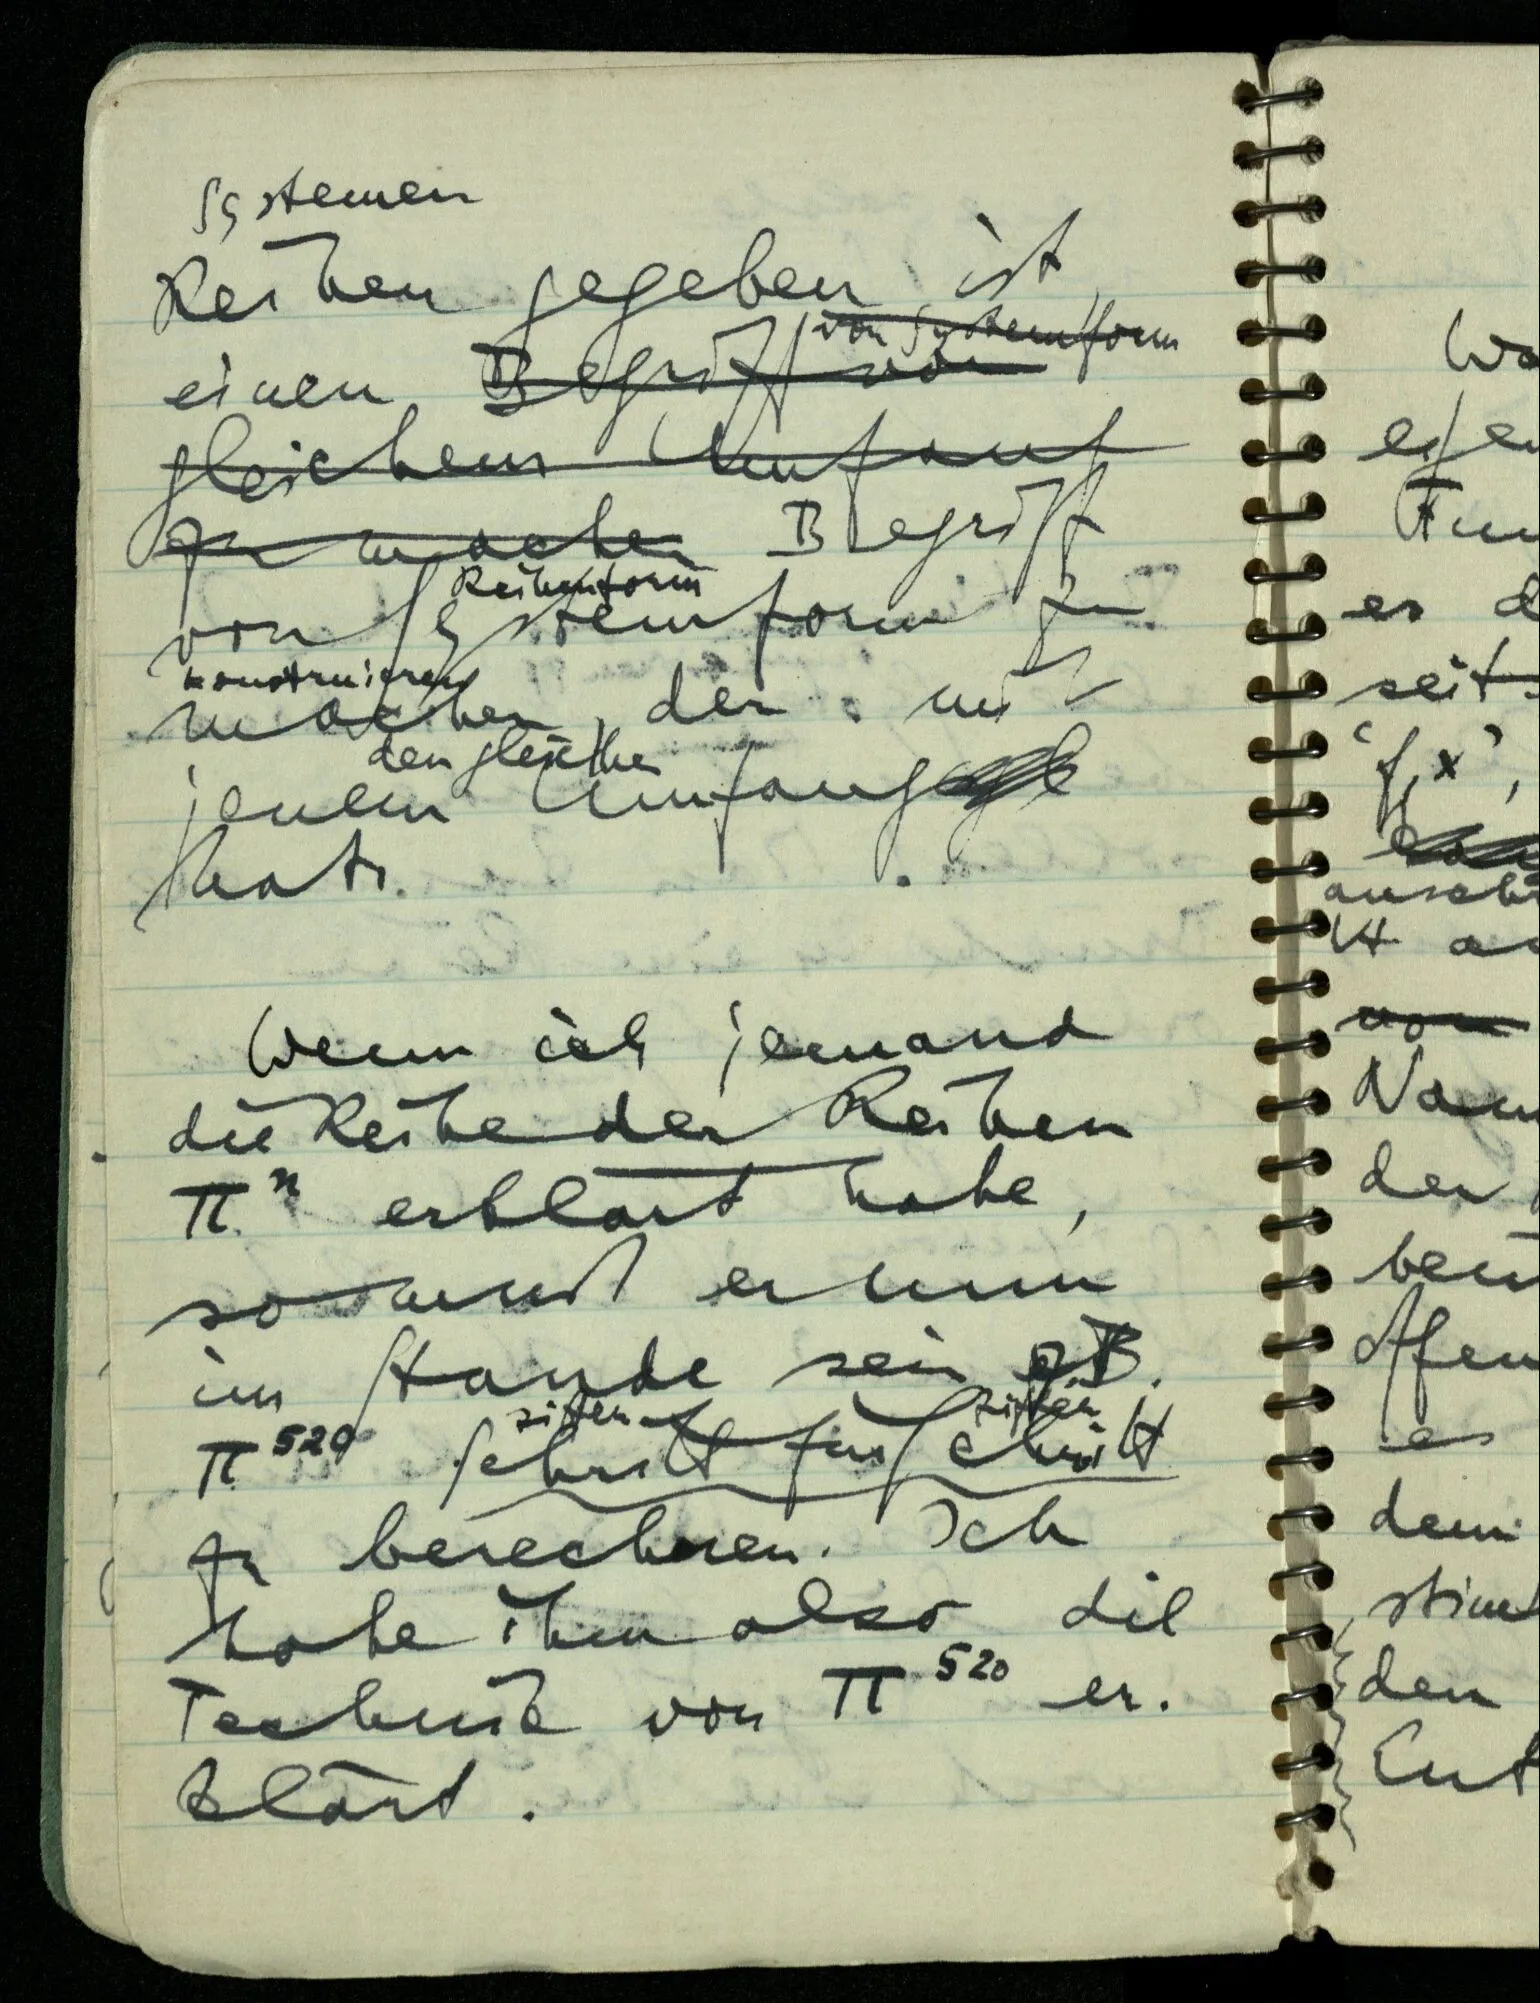 Systemen
Reihen gegeben ist,
von Systemform
einen Begriff von
gleichem Umfang
zu machen Begriff
Reihenform
von Systemform zu
konstruieren
machen, der mit
den gleichen
jenem Umfang
hat.
Wenn ich jemand
die Reihe der Reihen
π^n erklärt habe,
so muß er nun
im Stande sein z.B.
ziffer ziffer
π^520 Schritt für Schritt
zu berechnen. Ich
habe ihm also die
Technik von π^520 er-
klärt.
Wa
es d
seit
'fx',
ansch
von
Nam
der
es
dem
den